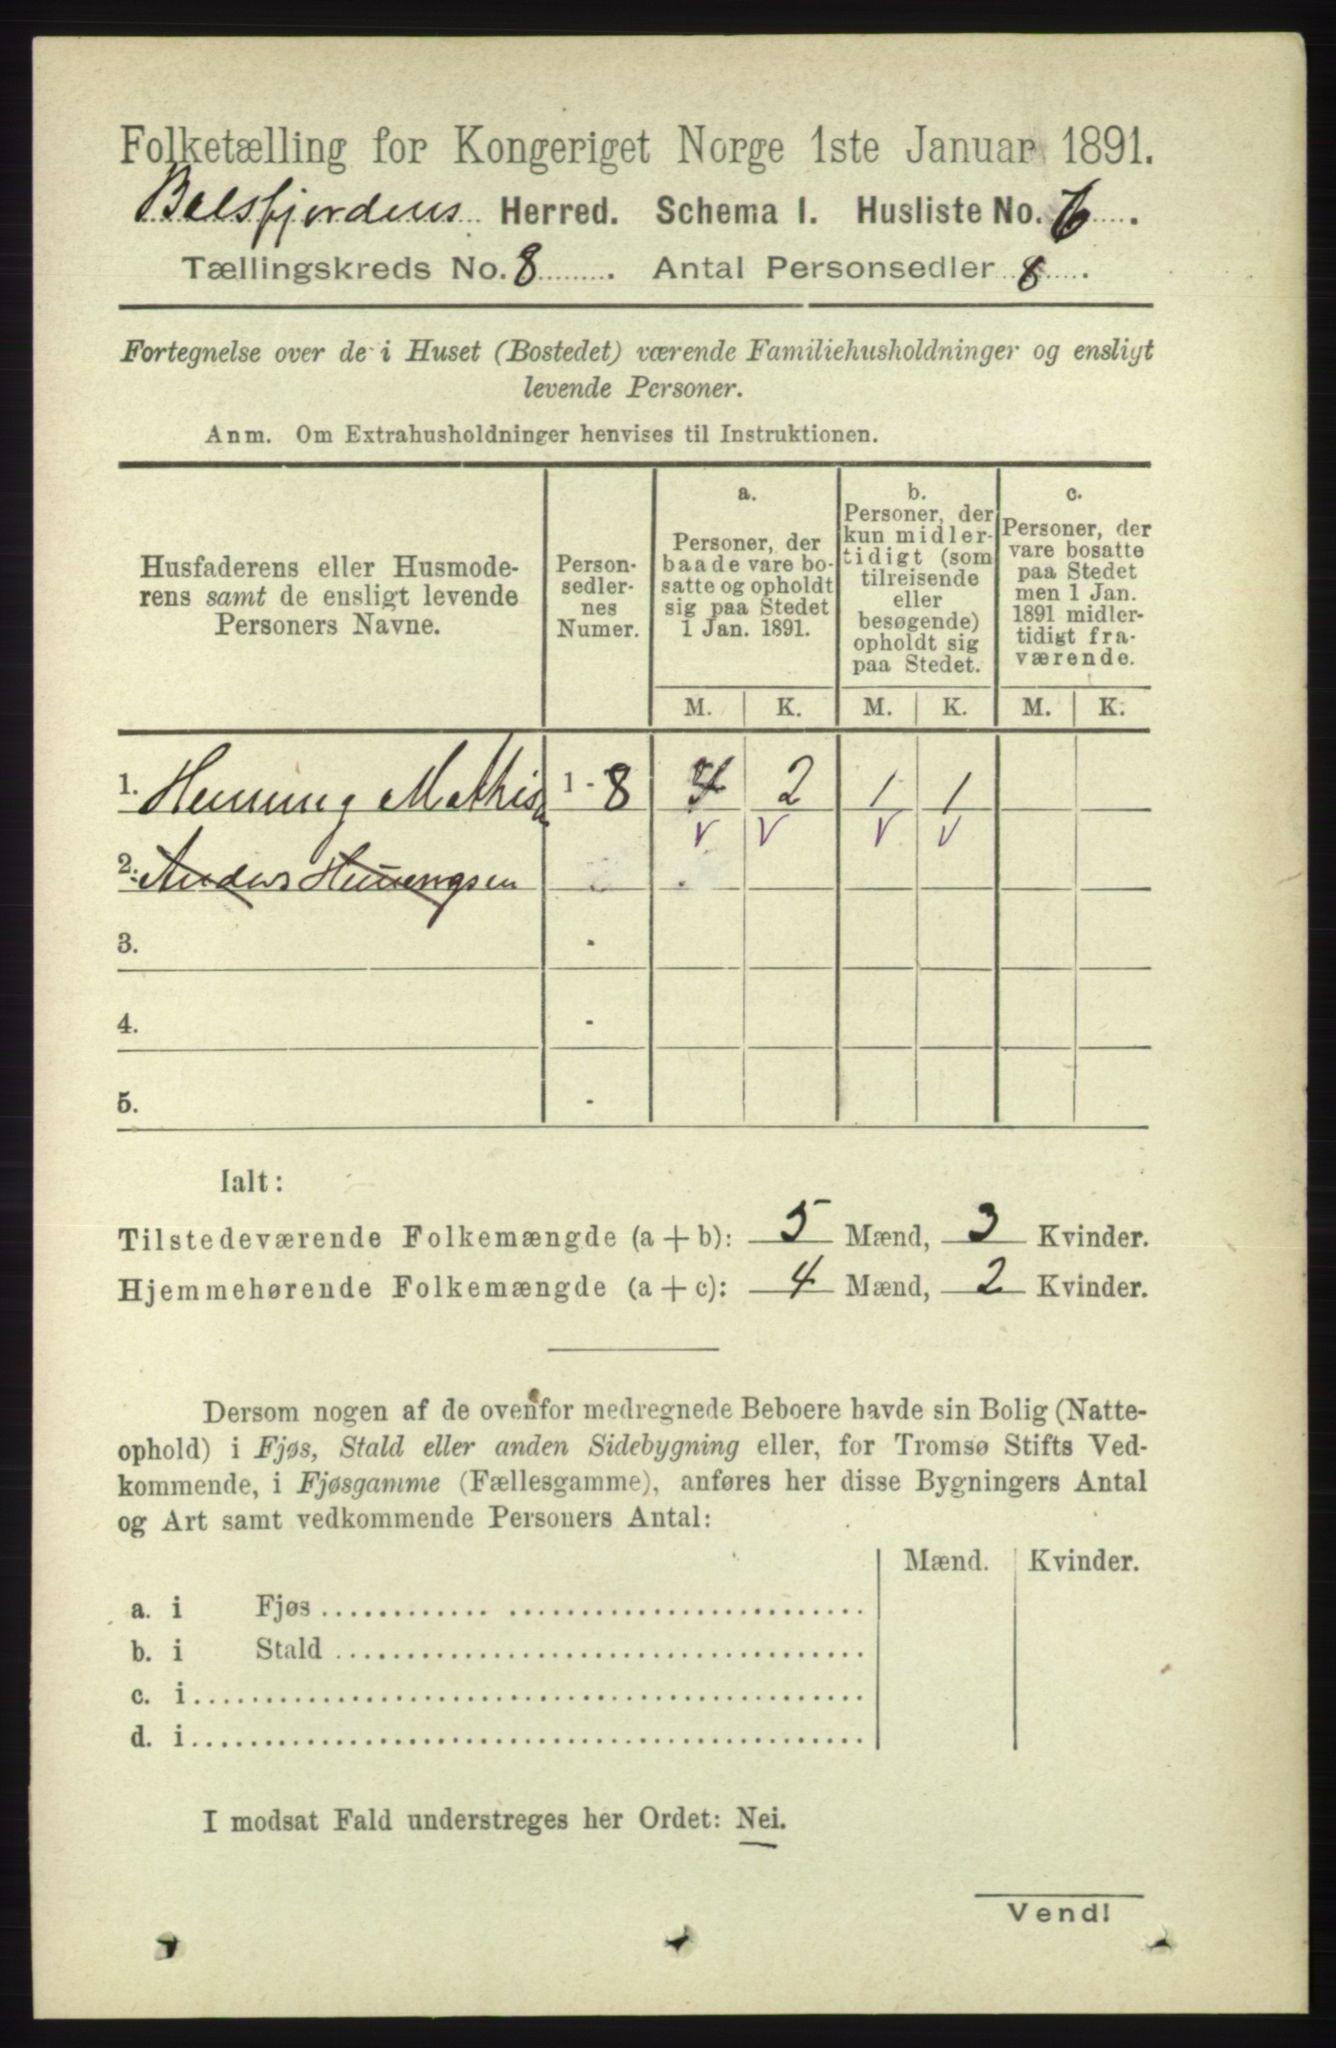 Folketælling for Kongeriget Norge 1ste Januar 1891.
Balsfjordens Herred. Schema I. Husliste No. 6.
Tællingskreds No. 8. Antal Personsedler 8.
Fortegnelse over de i Huset (Bostedet) værende Familiehusholdninger og ensligt
levende Personer.
Anm. Om Extrahusholdninger henvises til Instruktionen.
Husfaderens eller Husmode-
rens samt de ensligt levende
Personers Navne.
Person-
sedler-
nes
Numer.
a.
Personer, der
baade vare bo-
satte og opholdt
sig paa Stedet
1 Jan. 1891.
b.
Personer, der
kun midler-
tidigt (som
tilreisende
eller
besøgende)
opholdt sig
paa Stedet.
c.
Personer, der
vare bosatte
paa Stedet
men 1 Jan.
1891 midler-
tidigt fra-
værende.
M. K. M. K. M. K.
1. Henning Mathisn 1 - 8 4 2 1 1
v v v v
2. Anders Henningsen
3. -
4. -
5. -
Ialt:
Tilstedeværende Folkemængde (a + b): 5 Mænd, 3 Kvinder.
Hjemmehørende Folkemængde (a + c): 4 Mænd, 2 Kvinder.
Dersom nogen af de ovenfor medregnede Beboere havde sin Bolig (Natte-
ophold) i Fjøs, Stald eller anden Sidebygning eller, for Tromsø Stifts Ved-
kommende, i Fjøsgamme (Fællesgamme), anføres her disse Bygningers Antal
og Art samt vedkommende Personers Antal:
Mænd. Kvinder.
a. i Fjøs
b. i Stald
c. i
d. i
I modsat Fald understreges her Ordet: Nei.
Vend!